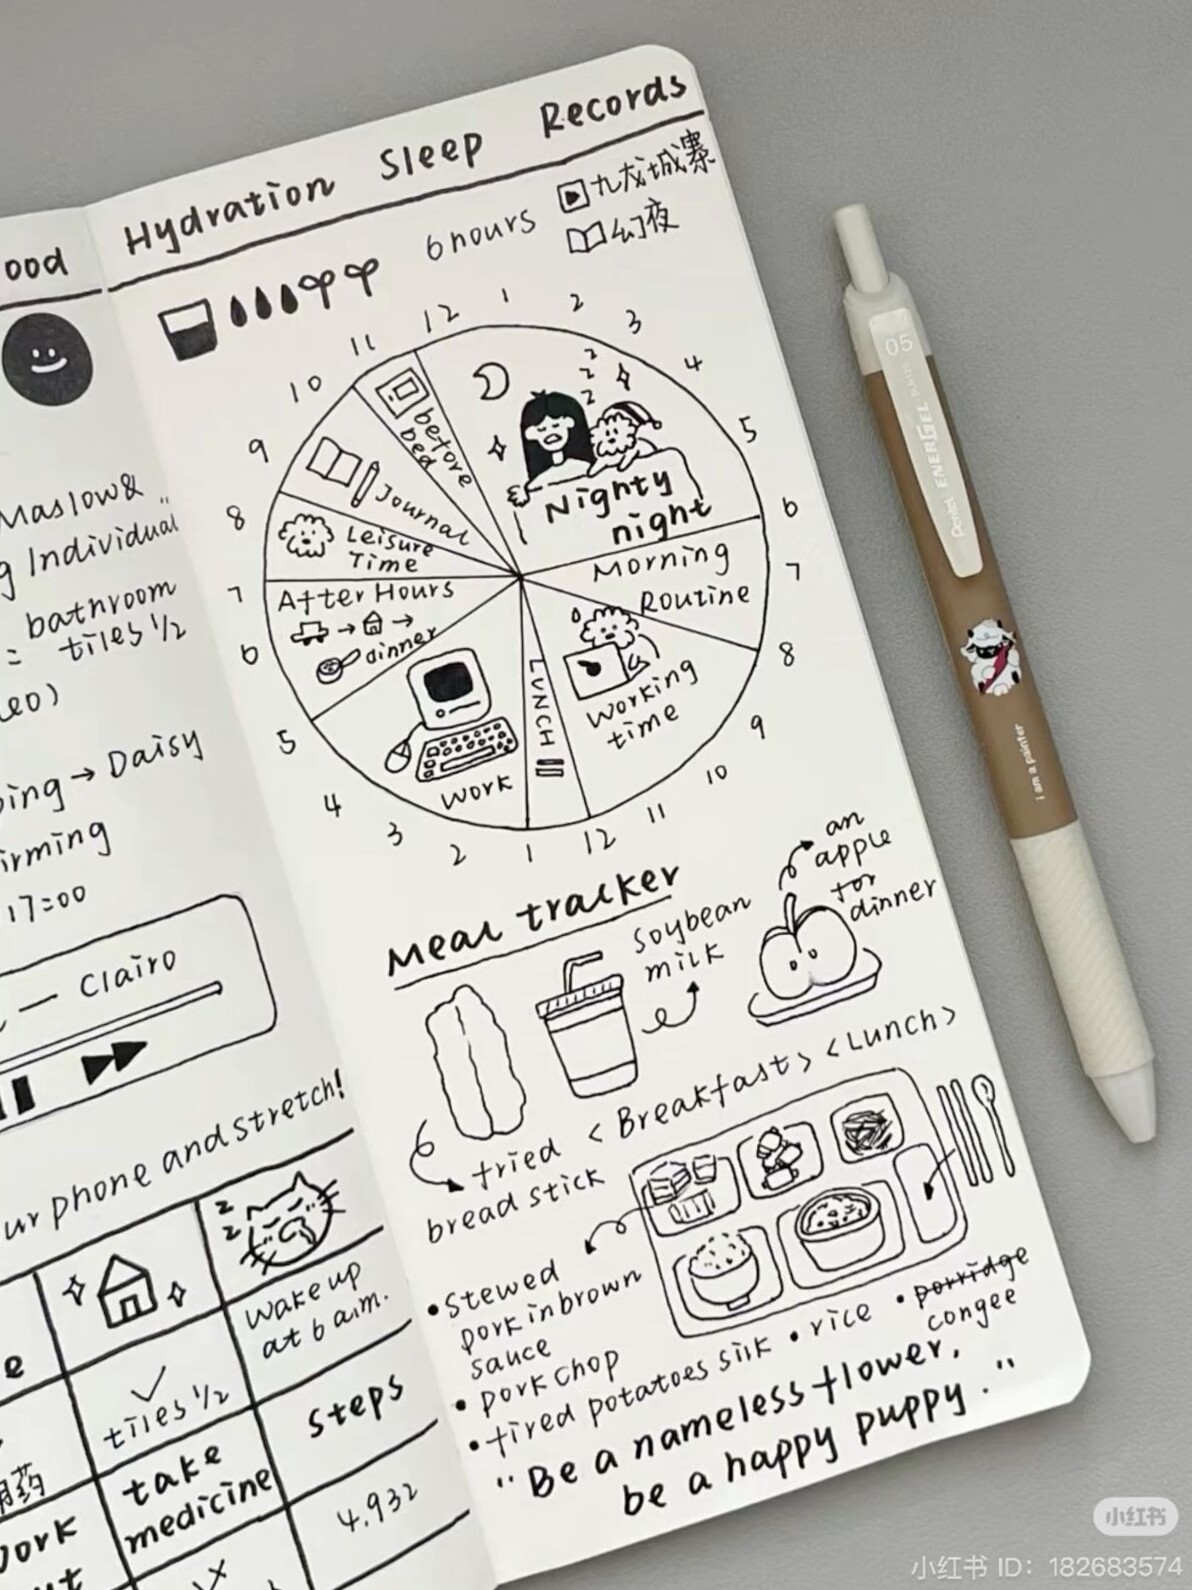 ood
Hydration Sleep Records
6 hours
九龙城寨
幻夜
Maslow &
Individual"
= bathroom
tiles 1/2
→ Daisy
17:00
— Clairo
phone and stretch!
Wake up
at 6 a.m.
✓
tiles 1/2
take
medicine
steps
4.932
12 1 2 3 4 5 6 7 8 9 10 11 12 1 2 3 4 5 6 7 8 9 10 11
z
z
z
Nighty
night
Morning
Routine
Working
time
LUNCH
WORK
After Hours
→ →
dinner
Leisure
Time
Journal
before
bed
Meal tracker
fried
bread stick
Soybean
milk
an
apple
for
dinner
<Breakfast> <Lunch>
• Stewed
pork in brown
sauce
• pork chop
• fired potatoes silk
• rice
• porridge
congee
"Be a nameless flower,
be a happy puppy."
05
Pentel ENERGEL
I am a painter
小红书
小红书 ID: 182683574